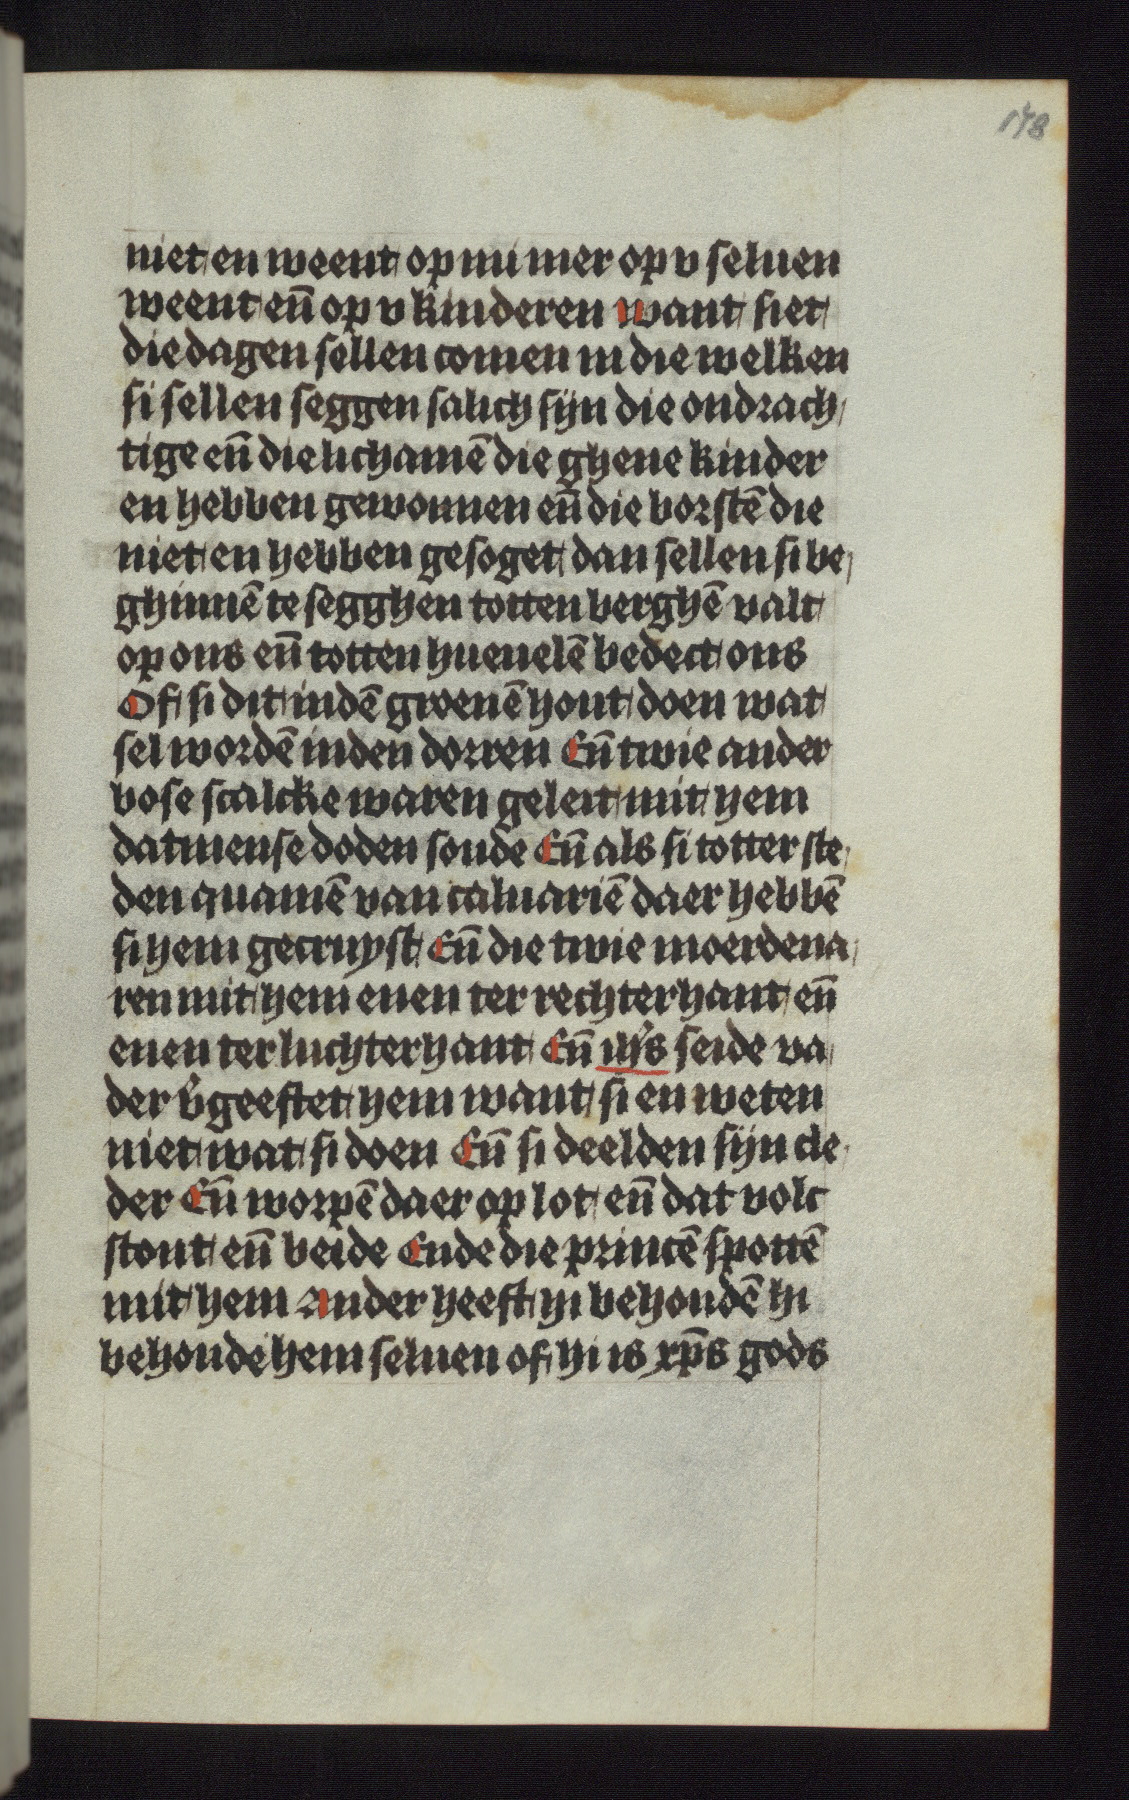 178
niet en weent op mi mer op v seluen
weent en̄ op v kinderen want siet
die dagen sellen comen in die welken
si sellen seggen salich sijn die ondrach
tige en̄ die lichamē die ghene kinder
en hebben gewonnen en̄ die borstē die
niet en hebben gesoget dan sellen si be
ghinnē te segghen totten berghē valt
op ons en̄ totten hueuelē bedect ons
Of si dit indē groenē hout doen wat
sel wordē inden dorren En̄ twie ander
bose scalcke waren geleit mit hem
datmense doden soude En̄ als si totter ste
den quamē van caluariē daer hebbē
si hem gecruyst En̄ die twie moerdena
ren mit hem enen ter rechterhant en̄
enen ter luchterhant En̄ ih̄s seide va
der v̄geeftet hem want si en weten
niet wat si doen En̄ si deelden sijn cle
der En̄ worpē daer op lot en̄ dat volc
stont en̄ beide Ende die princē spottē
mit hem Ander heeft hi behoudē hi
behoude hem seluen of hi is xp̄s gods